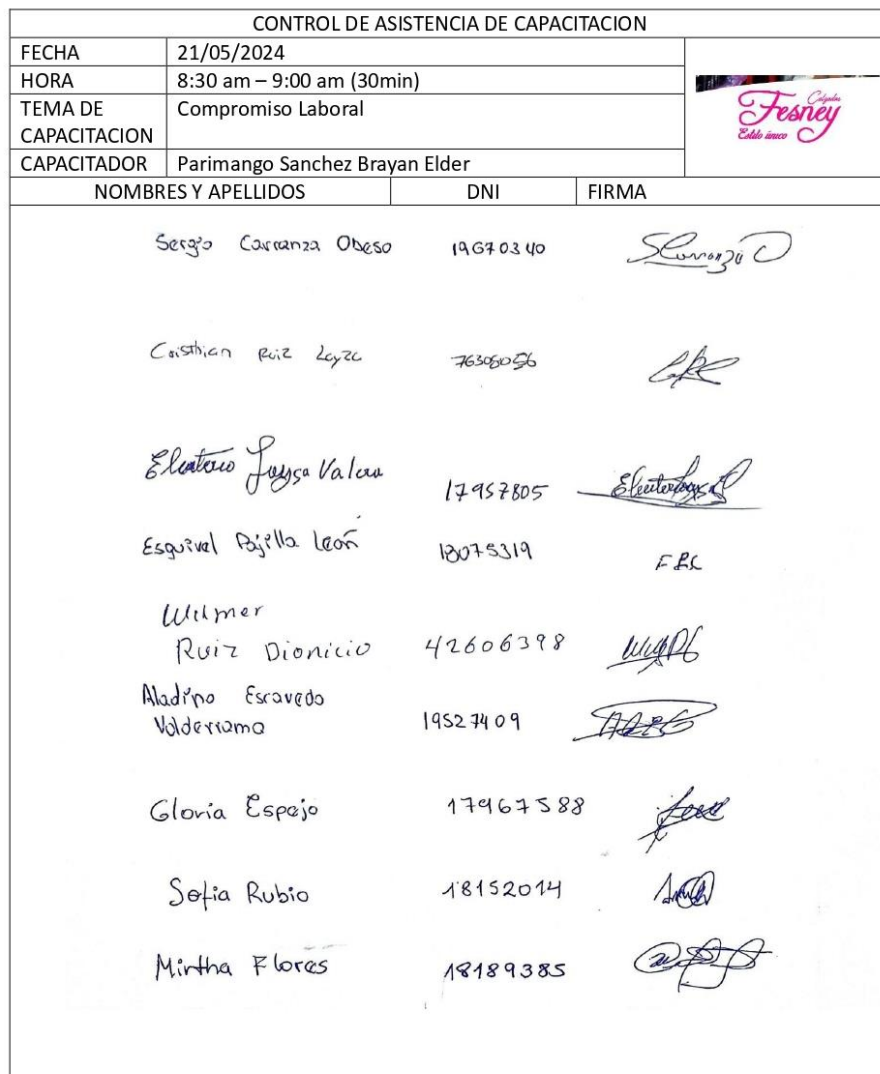 CONTROL DE ASISTENCIA DE CAPACITACION
FECHA 21/05/2024
HORA 8:30 am – 9:00 am (30min)
TEMA DE CAPACITACION Compromiso Laboral
CAPACITADOR Parimango Sanchez Brayan Elder
Calzados
Fesney
Estilo único
NOMBRES Y APELLIDOS DNI FIRMA
Sergio Carranza Obeso 19670340 SCarranza O
Cristhian Ruiz Layza 76308056
Eleuterio Layza Valera 17957805
Esquivel Pajilla León 18075319
Wilmer
Ruiz Dionicio 42606398
Aladino Escavedo
Valderrama 19527409
Gloria Espejo 17967588
Sofia Rubio 18152014
Mirtha Flores 18189385